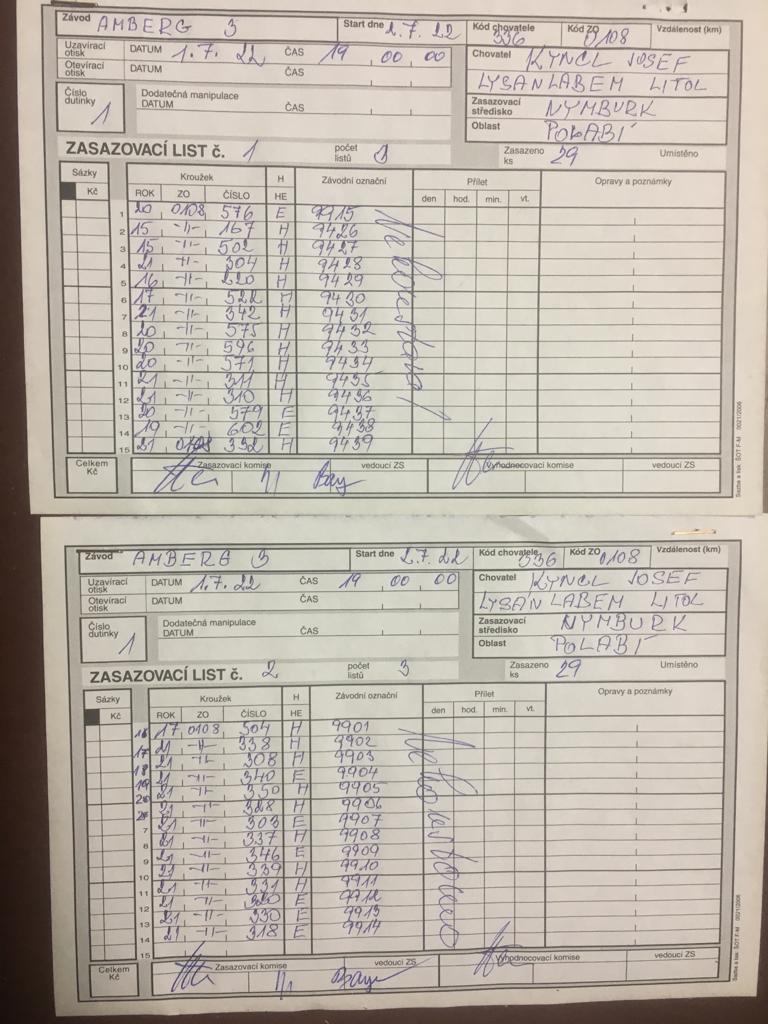 Závod AMBERG 3 Start dne 2.7.22 Kód chovatele 336 Kód ZO 0108 Vzdálenost (km)
Uzavírací otisk DATUM 1.7.22 ČAS 19 00 00
Otevírací otisk DATUM ČAS
Chovatel KYNCL JOSEF
LYSANLABEM LITOL
Číslo dutinky 1 Dodatečná manipulace DATUM ČAS
Zasazovací středisko NYMBURK
Oblast POLABÍ
ZASAZOVACÍ LIST č. 1 počet listů Zasazeno ks 29 Umístěno
Sázky Kroužek H Závodní označní Přílet Opravy a poznámky
Kč ROK ZO ČÍSLO HE den hod. min. vt.
1 20 0108 576 E 9915
2 15 -11- 167 H 9426
3 15 -11- 502 H 9427
4 21 -11- 304 H 9428
5 16 -11- 220 H 9429
6 17 -11- 522 H 9430
7 21 -11- 342 H 9431
8 20 -11- 575 H 9432
9 20 -11- 596 H 9433
10 20 -11- 571 H 9434
11 21 -11- 311 H 9435
12 21 -11- 310 H 9436
13 20 -11- 579 E 9437
14 19 -11- 602 E 9438
15 21 0108 332 H 9439
Celkem Kč Zasazovací komise vedoucí ZS Vyhodnocovací komise vedoucí ZS
Sazba a tisk: ŠOT F-M 0021/2006
Závod AMBERG 3 Start dne 2.7.22 Kód chovatele 336 Kód ZO 0108 Vzdálenost (km)
Uzavírací otisk DATUM 1.7.22 ČAS 19 00 00
Otevírací otisk DATUM ČAS
Chovatel KYNCL JOSEF
LYSANLABEM LITOL
Číslo dutinky 1 Dodatečná manipulace DATUM ČAS
Zasazovací středisko NYMBURK
Oblast POLABÍ
ZASAZOVACÍ LIST č. 2 počet listů 3 Zasazeno ks 29 Umístěno
Sázky Kroužek H Závodní označní Přílet Opravy a poznámky
Kč ROK ZO ČÍSLO HE den hod. min. vt.
16 17 0108 504 H 9901
17 21 -11- 338 H 9902
18 21 -11- 308 H 9903
19 21 -11- 340 E 9904
20 21 -11- 350 H 9905
21 -11- 328 H 9906
7 21 -11- 303 E 9907
8 21 -11- 337 H 9908
9 21 -11- 346 E 9909
10 21 -11- 339 H 9910
11 21 -11- 331 H 9911
12 21 -11- 320 E 9912
13 21 -11- 330 E 9913
14 21 -11- 318 E 9914
15
Celkem Kč Zasazovací komise vedoucí ZS Vyhodnocovací komise vedoucí ZS
Sazba a tisk: ŠOT F-M 0021/2006